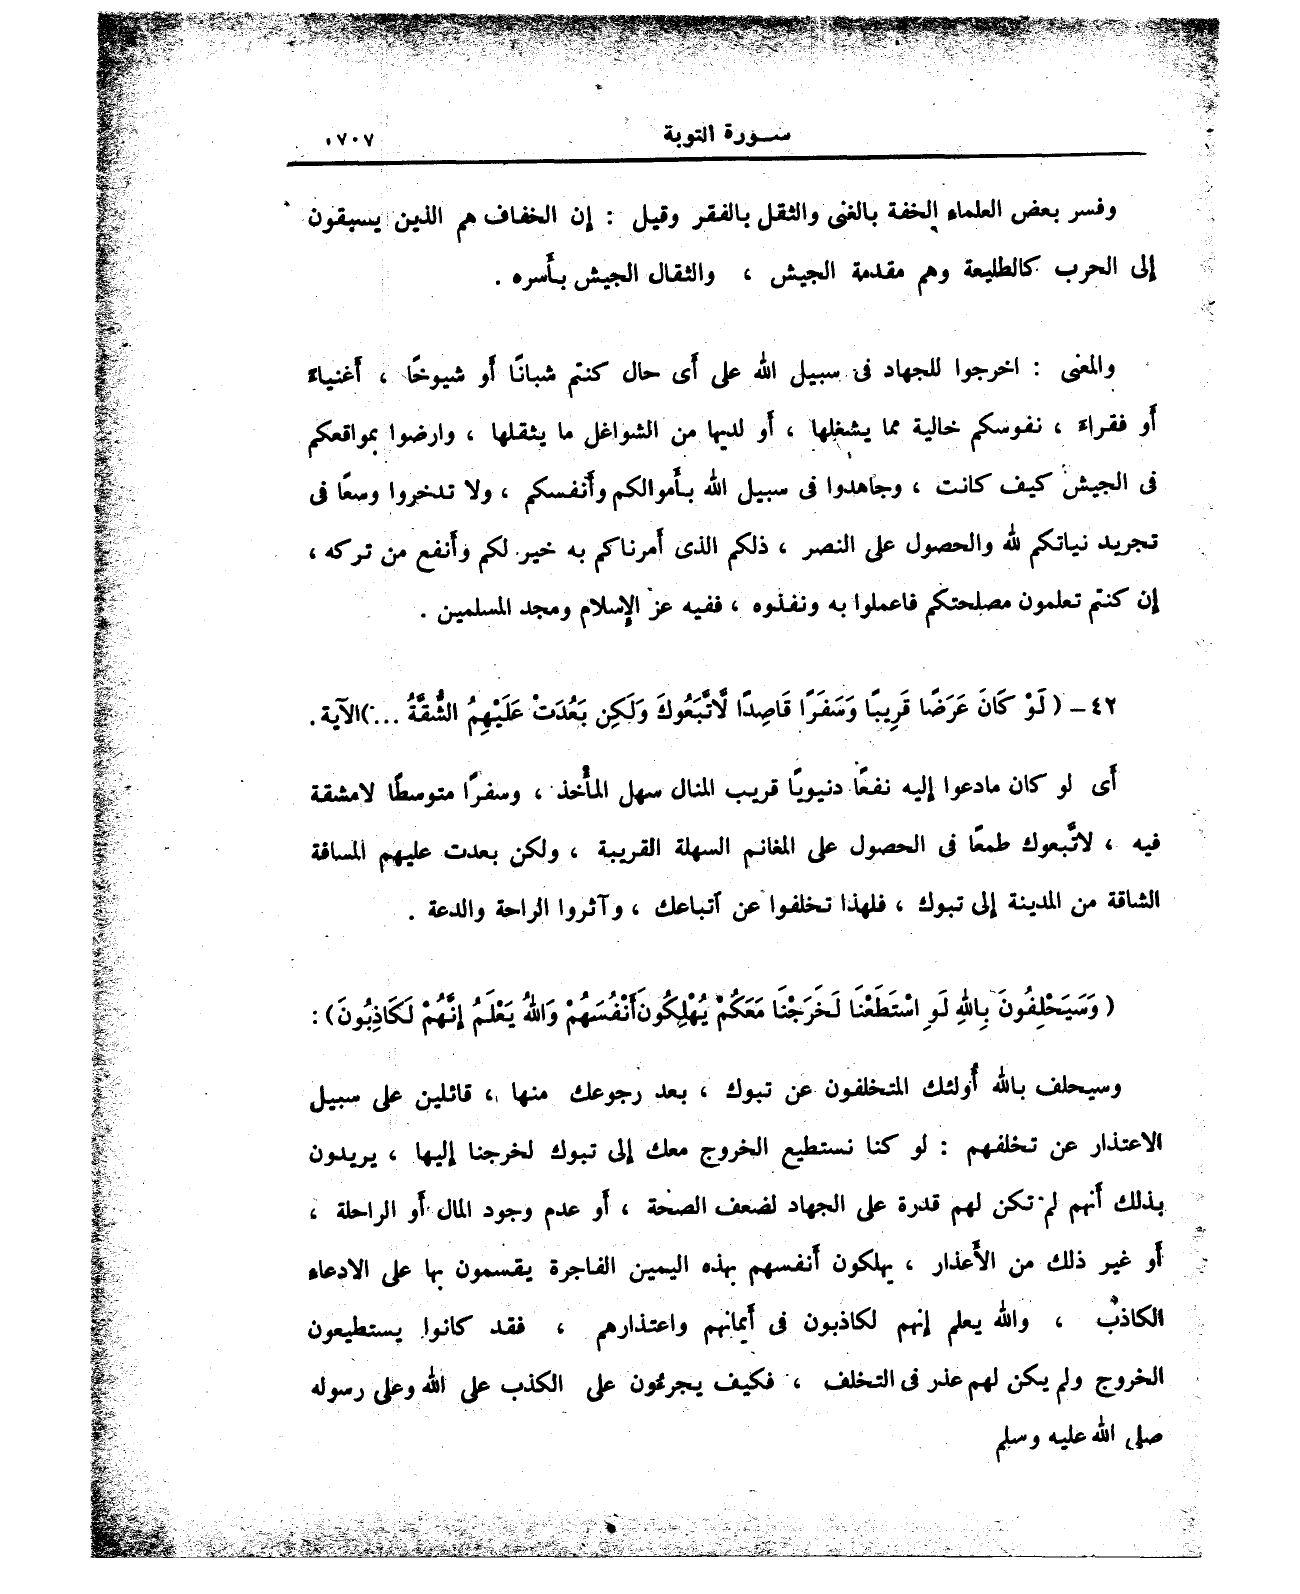 سورة التوبة ١٧٠٧
وفسر بعض العلماء الخفة بالغنى والثقل بالفقر وقيل : إن الخفاف هم الذين يسبقون
إلى الحرب كالطليعة وهم مقدمة الجيش ، والثقال الجيش بأسره .
والمعنى : اخرجوا للجهاد فى سبيل الله على أى حال كنتم شبانًا أو شيوخًا ، أغنياءً
أو فقراءً ، نفوسكم خالية مما يشغلها ، أو لديها من الشواغل ما يثقلها ، وارضوا بمواقعكم
فى الجيش كيف كانت ، وجاهدوا فى سبيل الله بأموالكم وأنفسكم ، ولا تدخروا وسعًا فى
تجريد نياتكم لله والحصول على النصر ، ذلكم الذى أمرناكم به خير لكم وأنفع من تركه ،
إن كنتم تعلمون مصلحتكم فاعملوا به ونفذوه ، ففيه عز الإسلام ومجد المسلمين .
٤٢ – ( لَوْ كَانَ عَرَضًا قَرِيبًا وَسَفَرًا قَاصِدًا لَّاتَّبَعُوكَ وَلَكِن بَعُدَتْ عَلَيْهِمُ الشُّقَّةُ ... )الآية .
أى لو كان مادعوا إليه نفعًا دنيويًا قريب المنال سهل المأخذ ، وسفرًا متوسطًا لامشقة
فيه ، لاتَّبعوك طمعًا فى الحصول على المغانم السهلة القريبة ، ولكن بعدت عليهم المسافة
الشاقة من المدينة إلى تبوك ، فلهذا تخلفوا عن اتباعك ، وآثروا الراحة والدعة .
( وَسَيَحْلِفُونَ بِاللهِ لَوِ اسْتَطَعْنَا لَخَرَجْنَا مَعَكُمْ يُهْلِكُونَ أَنْفُسَهُمْ وَاللهُ يَعْلَمُ إِنَّهُمْ لَكَاذِبُونَ ) :
وسيحلف بالله أُولئك المتخلفون عن تبوك ، بعد رجوعك منها ، قائلين على سبيل
الاعتذار عن تخلفهم : لو كنا نستطيع الخروج معك إلى تبوك لخرجنا إليها ، يريدون
بذلك أنهم لم تكن لهم قدرة على الجهاد لضعف الصحة ، أو عدم وجود المال أو الراحلة ،
أو غير ذلك من الأعذار ، يهلكون أنفسهم بهذه اليمين الفاجرة يقسمون بها على الادعاء
الكاذب ، والله يعلم إنهم لكاذبون فى أيمانهم واعتذارهم ، فقد كانوا يستطيعون
الخروج ولم يكن لهم عذر فى التخلف ، فكيف يجرءُون على الكذب على الله وعلى رسوله
صلى الله عليه وسلم